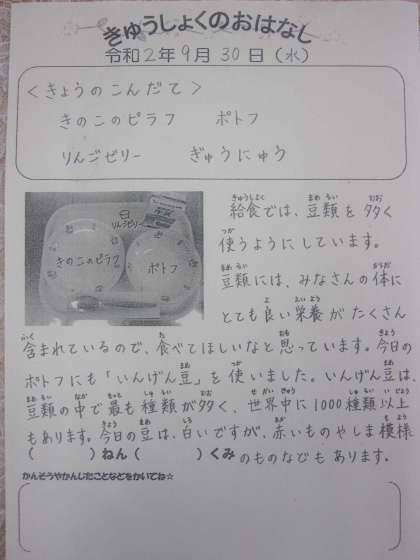 きゅうしょくのおはなし
令和2年9月30日（水）
＜きょうのこんだて＞
きのこのピラフ　ポトフ
りんごゼリー　ぎゅうにゅう
きのこのピラフ
りんごゼリー
ポトフ
給食では、豆類を多く
使うようにしています。
豆類には、みなさんの体に
とても良い栄養がたくさん
含まれているので、食べてほしいなと思っています。今日の
ポトフにも「いんげん豆」を使いました。いんげん豆は、
豆類の中で最も種類が多く、世界中に1000種類以上
もあります。今日の豆は、白いですが、赤いものやしま模様
（　　）ねん（　　）くみ
のものなどもあります。
かんそうやかんじたことなどをかいてね☆